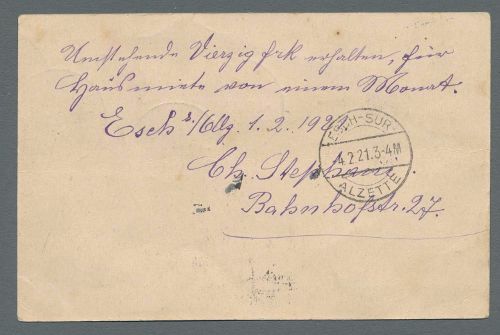 Umstehende Vierzig frk erhalten, für
Hausmiete von einem Monat.
Esch s./Allg. 1. 2. 1921
ESCH-SUR-
4.2.21.3-4M
ALZETTE
Ch. Stephany.
Bahnhofstr. 27.